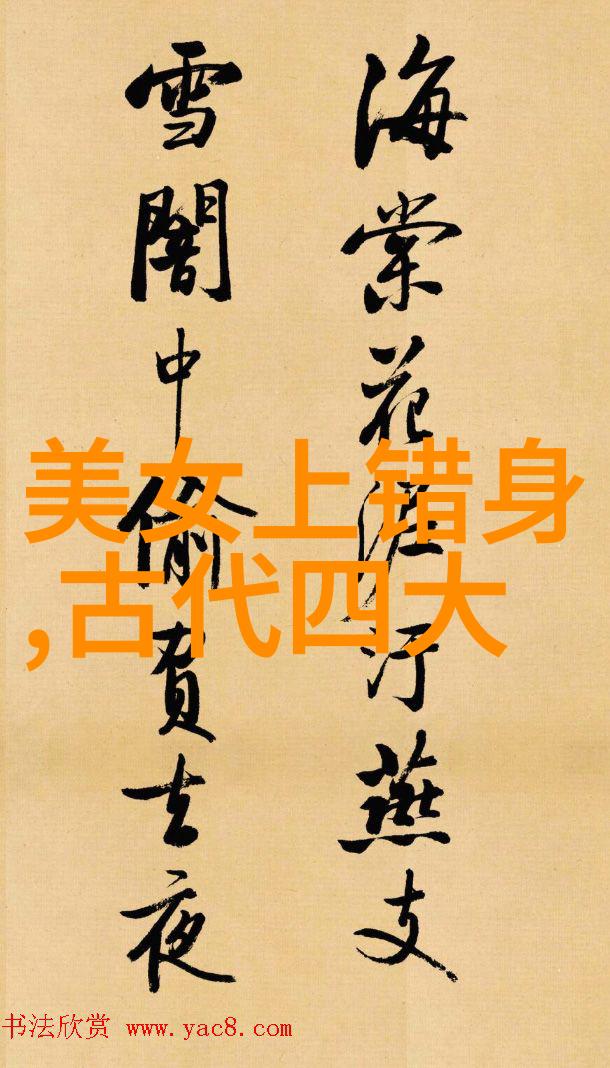 海棠花泥汙燕支
雪闇中偷負去夜
美女上错身
,古代四大
书法欣赏 www.yac8.com